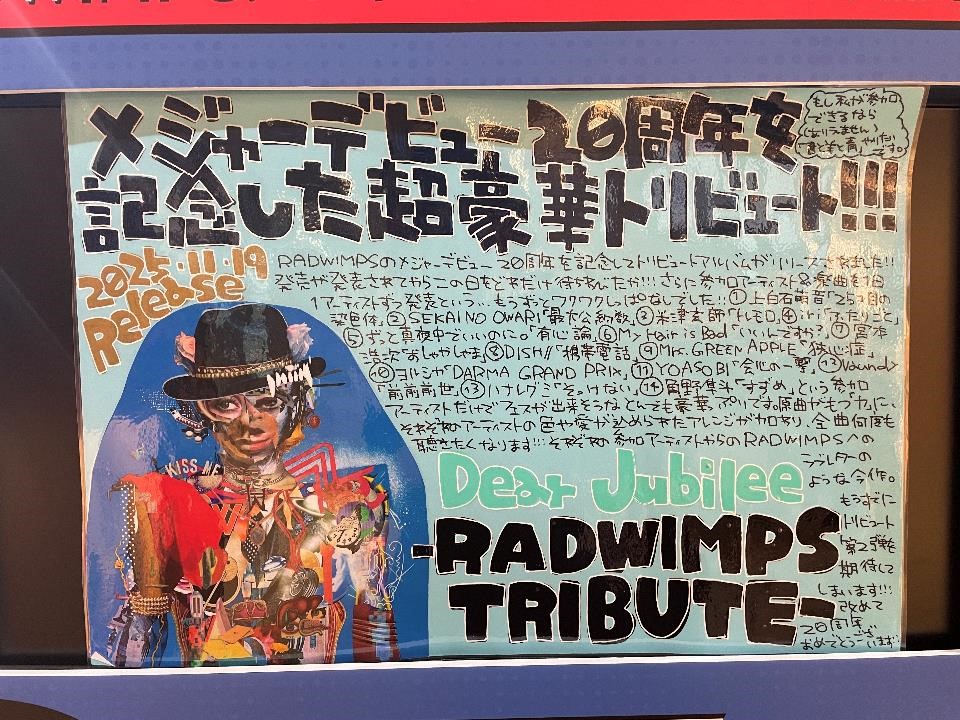 メジャーデビュー20周年を
記念した超豪華トリビュート!!!
もし私が参加
できるなら
(なりません)
です。
2025・11・19
Release
RADWIMPSのメジャーデビュー20周年を記念してトリビュートアルバムがリリースされました!!
発売が発表されてからこの日をどれだけ待ちわびたか!!!さらに参加アーティスト&楽曲を1日
1アーティストずつ発表という…もうずっとワクワクしっぱなしでした!!①上白石萌音「25コ目の
染色体」②SEKAI NO OWARI「最大公約数」③米津玄師「トレモロ」④iri「ふたりごと」
⑤ずっと真夜中でいいのに。「有心論」⑥My Hair is Bad「いいんですか?」⑦宮本
浩次「おしゃかしゃま」⑧DISH//「携帯電話」⑨Mrs. GREEN APPLE「狭心症」
⑩ヨルシカ「DARMA GRAND PRIX」⑪YOASOBI「会心の一撃」⑫Vaundy
「前前前世」⑬ハナレグミ「そっけない」⑭角野隼斗「すずめ」という参加
アーティストだけでフェスが出来そうなとんでも豪華っぷりです。原曲がもつ力に、
それぞれのアーティストの色や愛が込められたアレンジが加わり、全曲何度も
聴きたくなります!!!それぞれの参加アーティストからのRADWIMPSへの
ラブレターの
ような今作。
もうすでに
トリビュート
第2弾を
期待して
しまいます!!!
改めて
20周年
おめでとうございます
Dear Jubilee
-RADWIMPS
TRIBUTE-
KISS ME